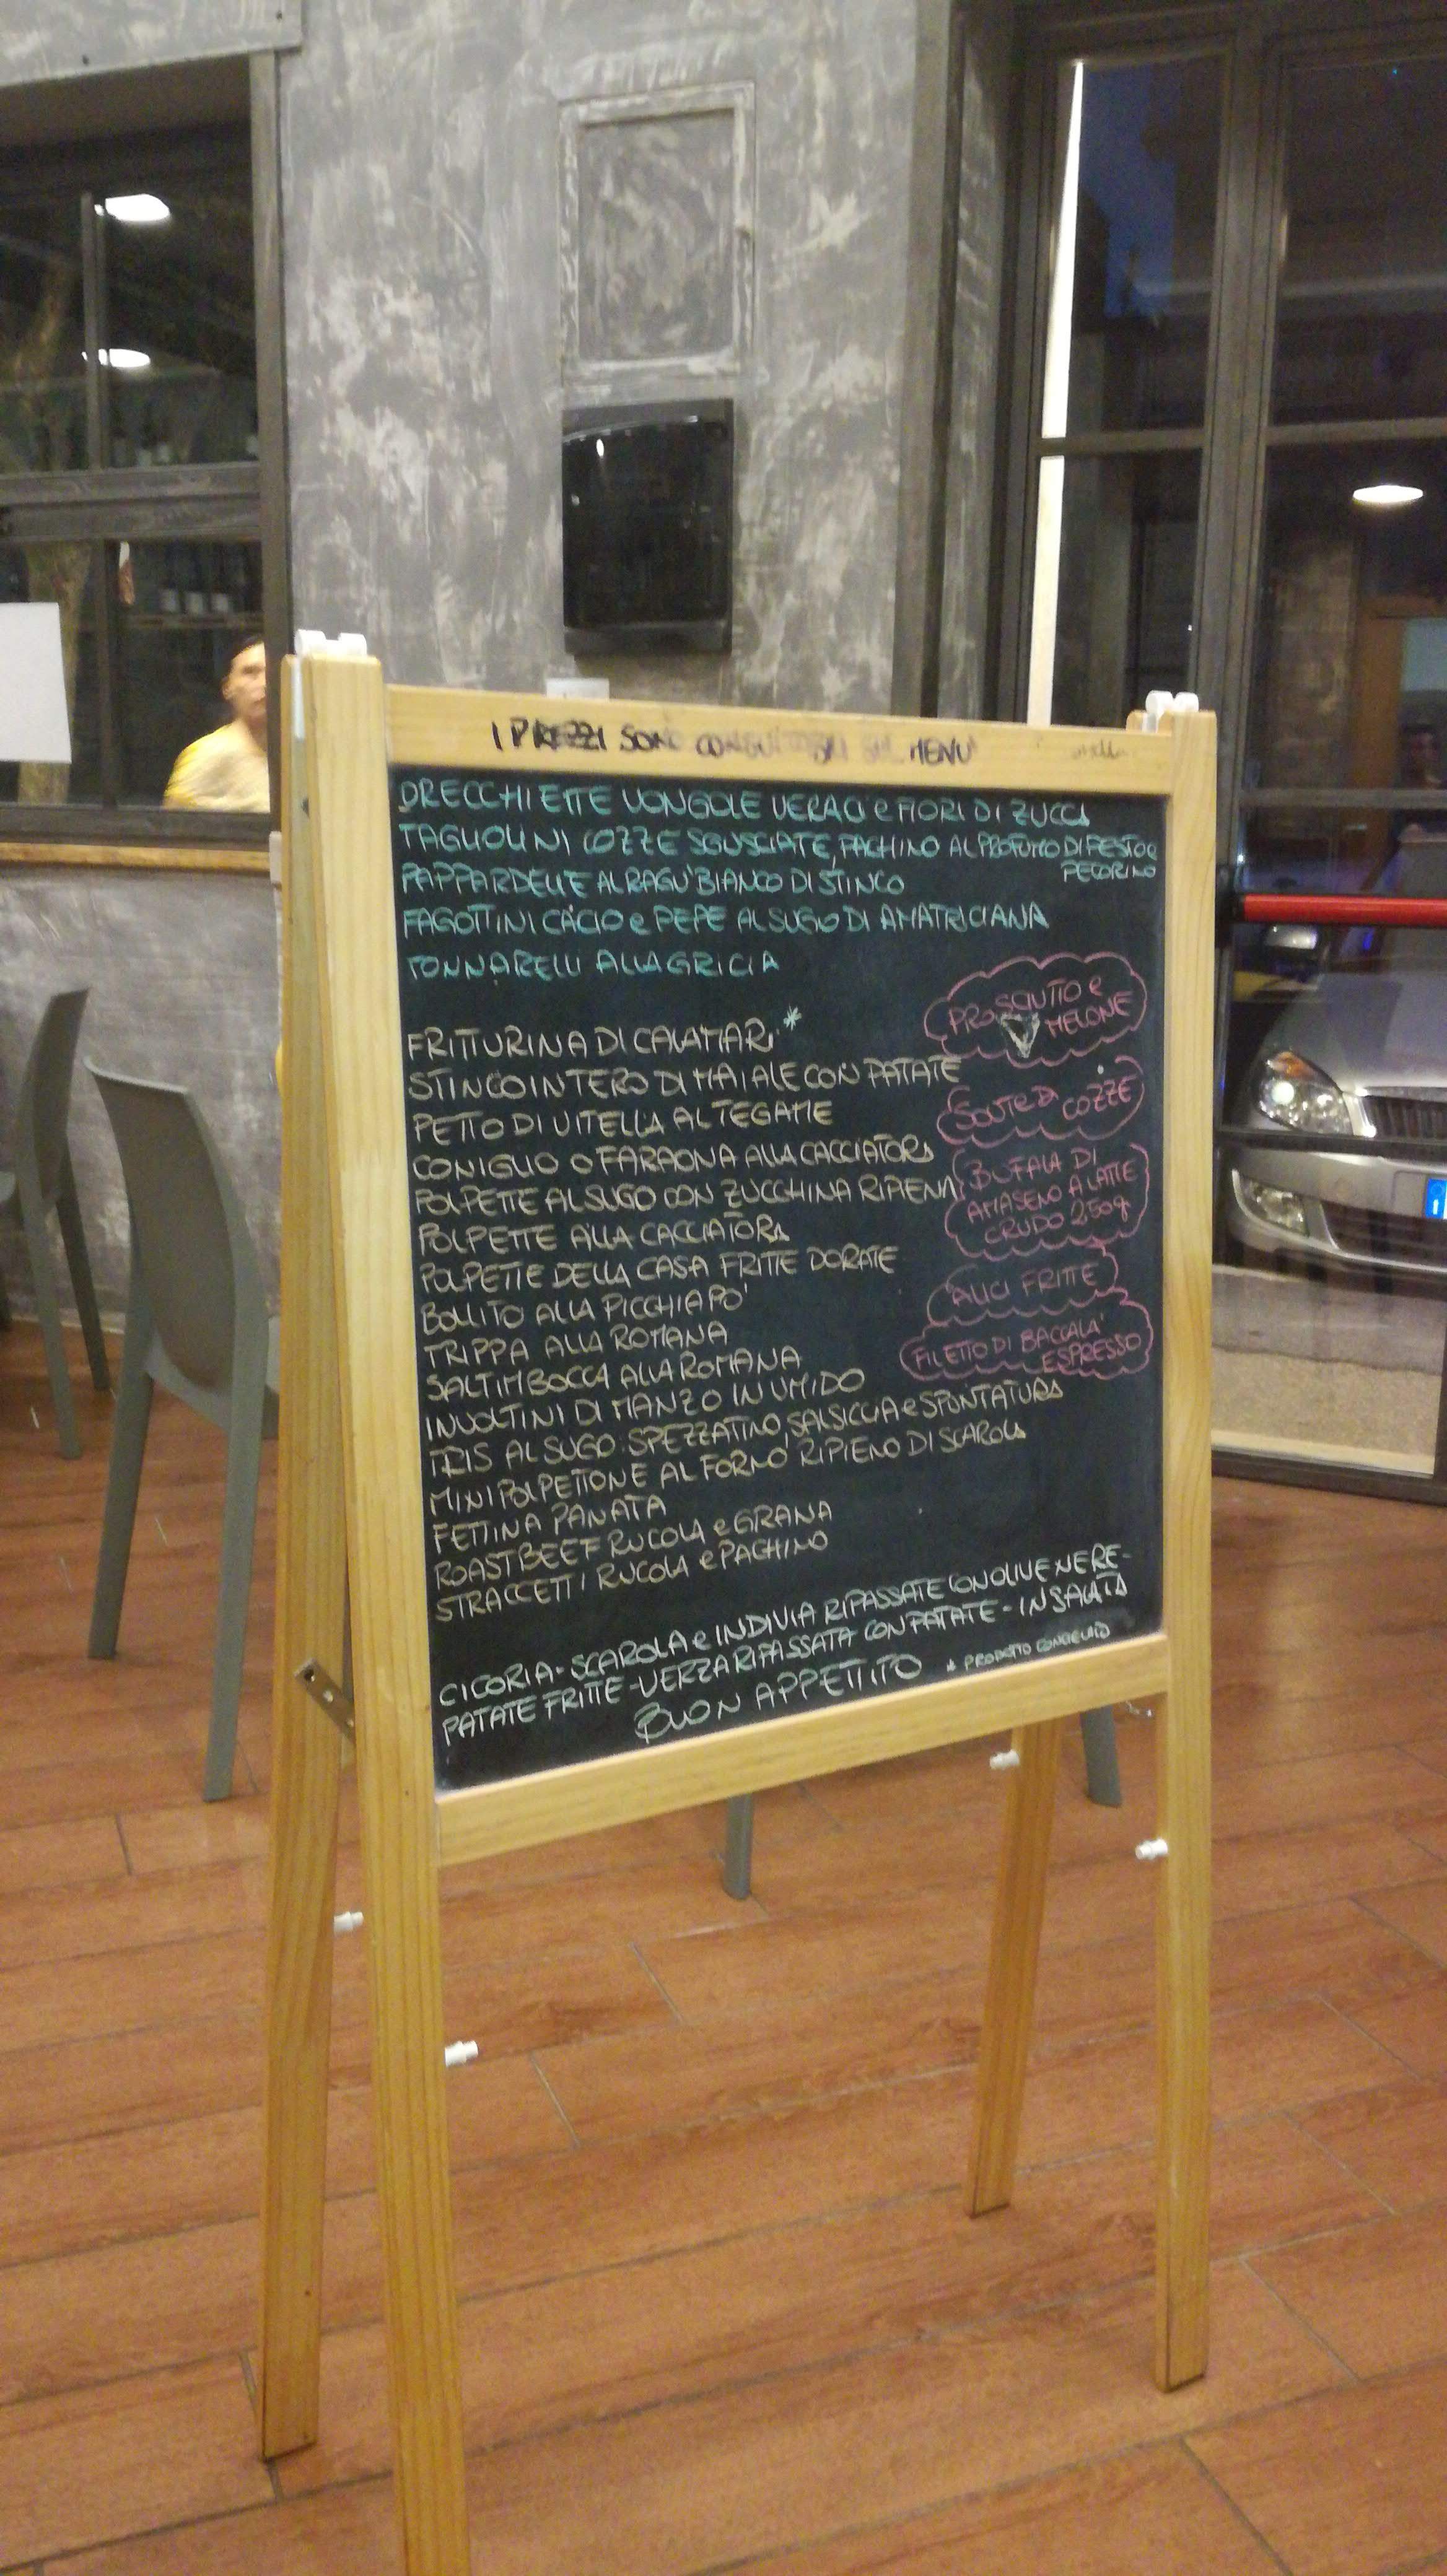 I PREZZI SONO CONSULTABILI SUL MENU'
ORECCHIETTE VONGOLE VERACI e FIORI DI ZUCCA
TAGLIOLINI COZZE SGUSCIATE, PACHINO AL PROFUMO DI PESTO e
PECORINO
PAPPARDELLE AL RAGU' BIANCO DI STINCO
FAGOTTINI CACIO e PEPE AL SUGO DI AMATRICIANA
TONNARELLI ALLA GRICIA
FRITTURINA DI CALAMARI *
STINCO INTERO DI MAIALE CON PATATE
PETTO DI VITELLA AL TEGAME
CONIGLIO O FARAONA ALLA CACCIATORA
POLPETTE AL SUGO CON ZUCCHINA RIPIENA
POLPETTE ALLA CACCIATORA
POLPETTE DELLA CASA FRITTE DORATE
BOLLITO ALLA PICCHIAPO'
TRIPPA ALLA ROMANA
SALTIMBOCCA ALLA ROMANA
INVOLTINI DI MANZO IN UMIDO
TRIS AL SUGO: SPEZZATINO, SALSICCIA e SPUNTATURA
MINI POLPETTONE AL FORNO RIPIENO DI SCAROLA
FETTINA PANATA
ROASTBEEF RUCOLA e GRANA
STRACCETTI RUCOLA e PACHINO
PROSCIUTTO e
MELONE
SOUTE DI
COZZE
BUFALA DI
AMASENO A LATTE
CRUDO 250g
ALICI FRITTE
FILETTO DI BACCALA'
ESPRESSO
CICORIA - SCAROLA e INDIVIA RIPASSATE CON OLIVE NERE -
PATATE FRITTE - VERZA RIPASSATA CON PATATE - INSALATA
BUON APPETITO
* PRODOTTO CONGELATO